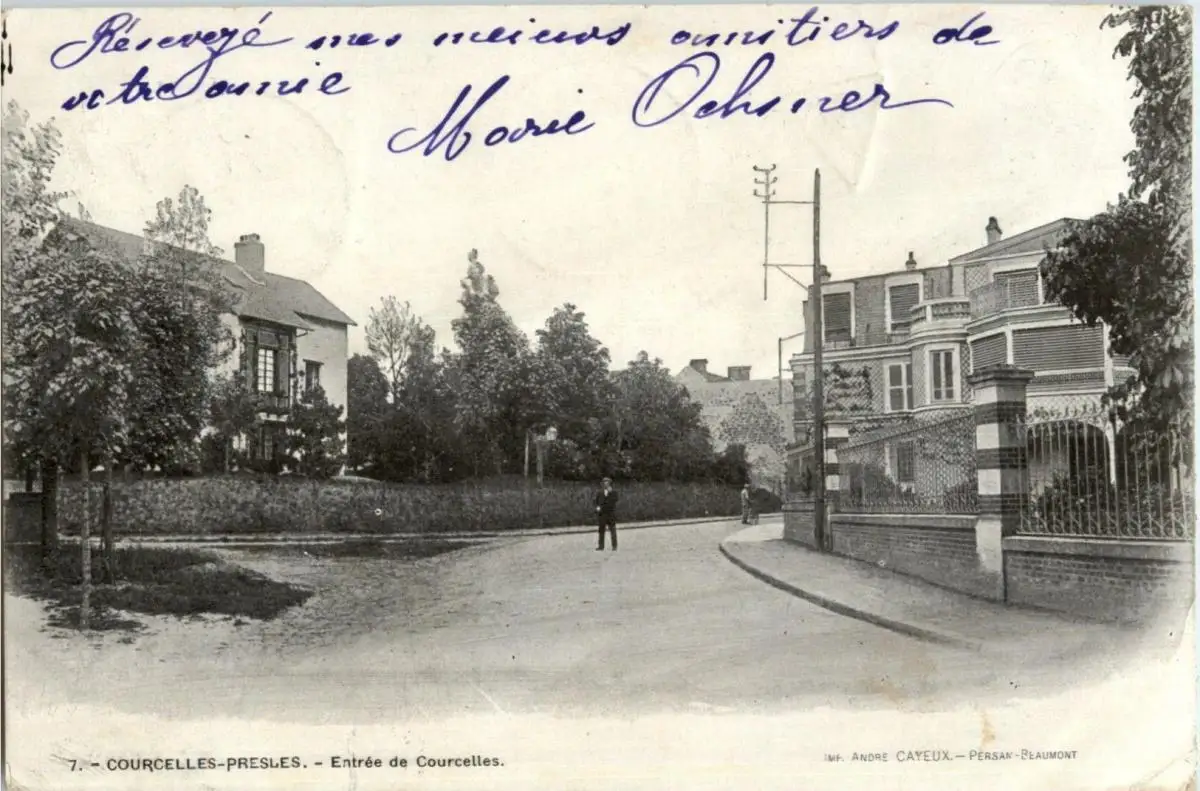 Réservezé mes meieurs amitiers de
votre amie
Marie Ochsner
7. - COURCELLES-PRESLES. - Entrée de Courcelles.
IMP. ANDRE CAYEUX. — PERSAN-BEAUMONT